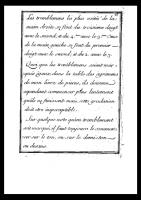 Les tremblemens les plus usités de la
main droite se font du troisieme doigt
avec le second, et du 4.me avec le 3.me Ceux
de la main gauche se font du premier
doigt avec le second, et du 2. avec le 3.
Quoi que les tremblemens soient mar-
qués dans la table des agrémens
de mon livre de pièces,
cependant commencer plus lentement
qu'ils ne finissent mais, cette gradation
doit être imperceptible.
Sur quelque note qu'un tremblement
soit marqué, il faut toujours le commen-
cer sur le ton, ou sur le demi-ton
au dessus.